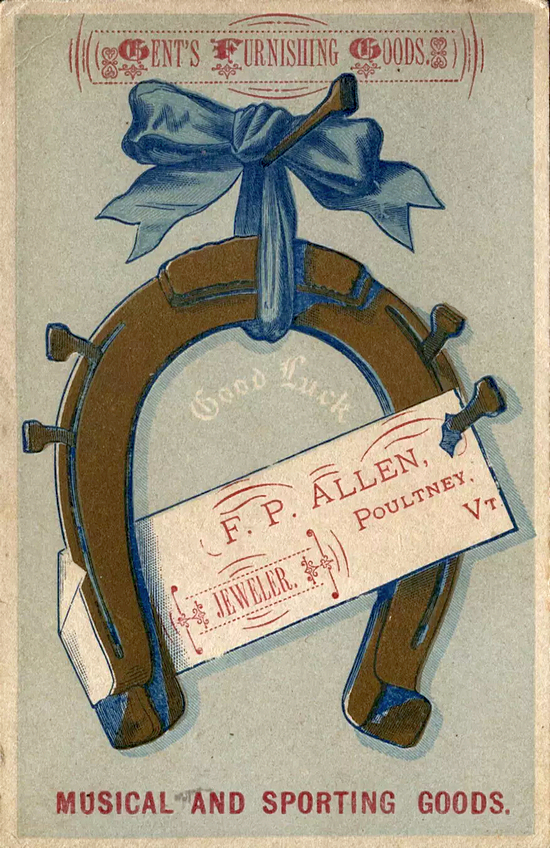 GENT'S FURNISHING GOODS.
Good Luck
F. P. ALLEN,
POULTNEY,
VT
JEWELER.
MUSICAL AND SPORTING GOODS.